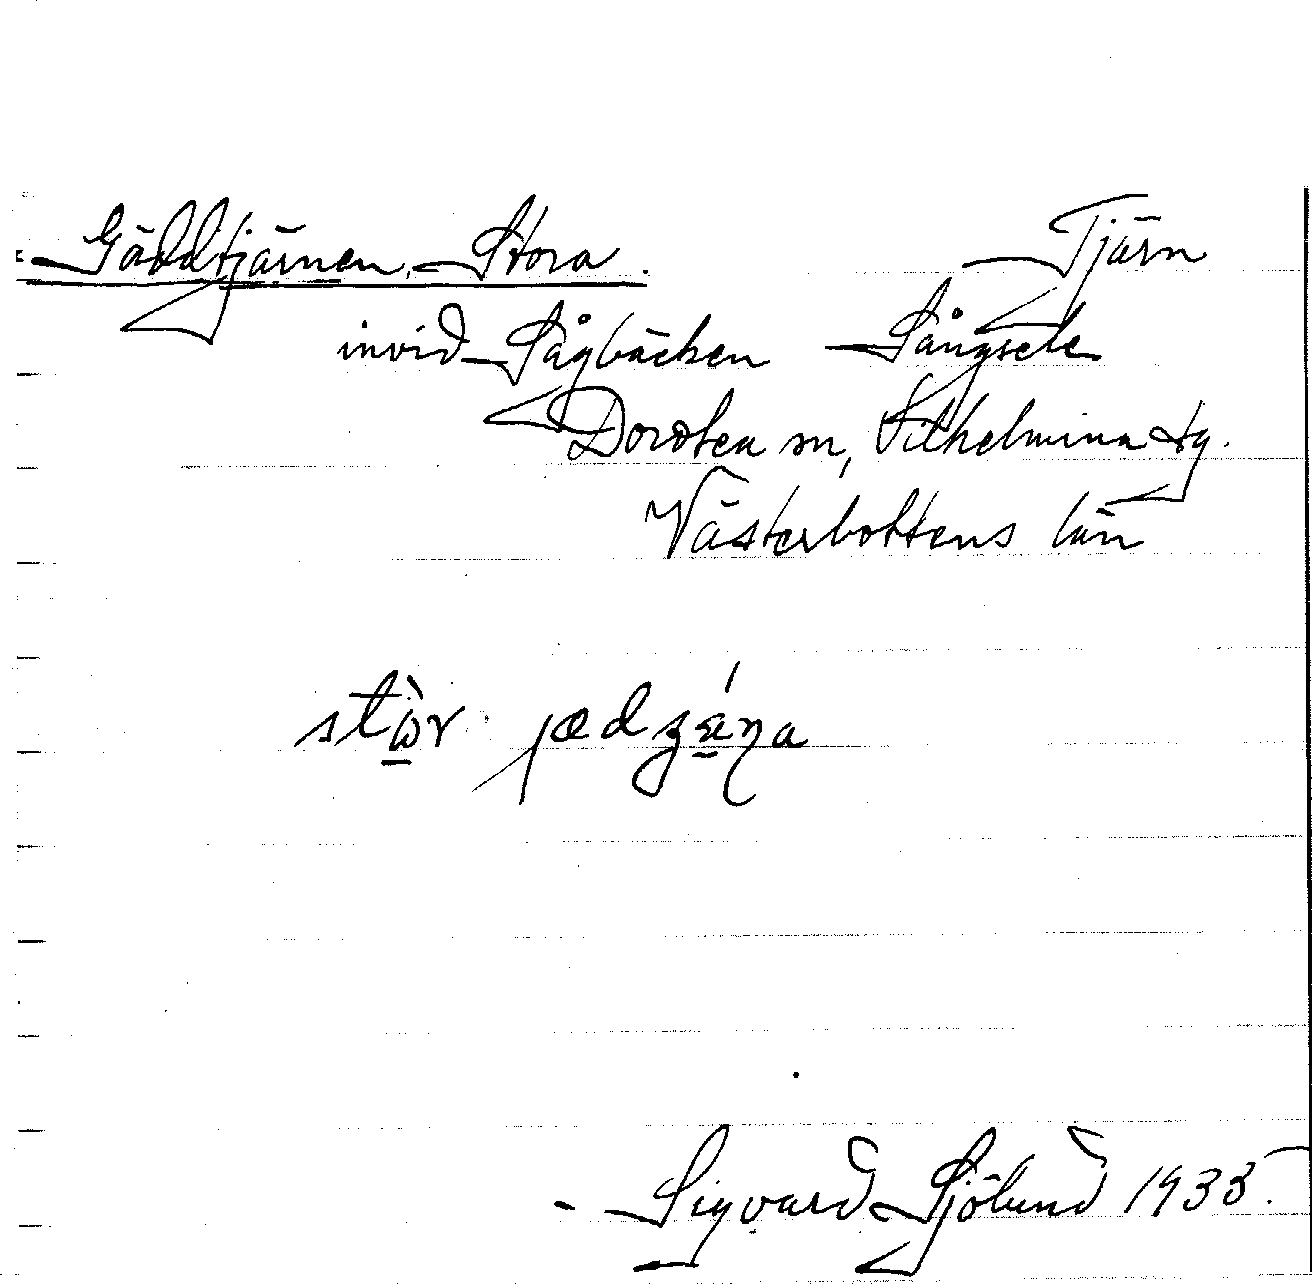 Gäddtjärnen, Stora. Tjärn
invid Sågbäcken Långsele
Dorotea sn, Vilhelmina tg.
Västerbottens län
stὼr jædʒǽɳa
Sigvard Sjölund 1935.